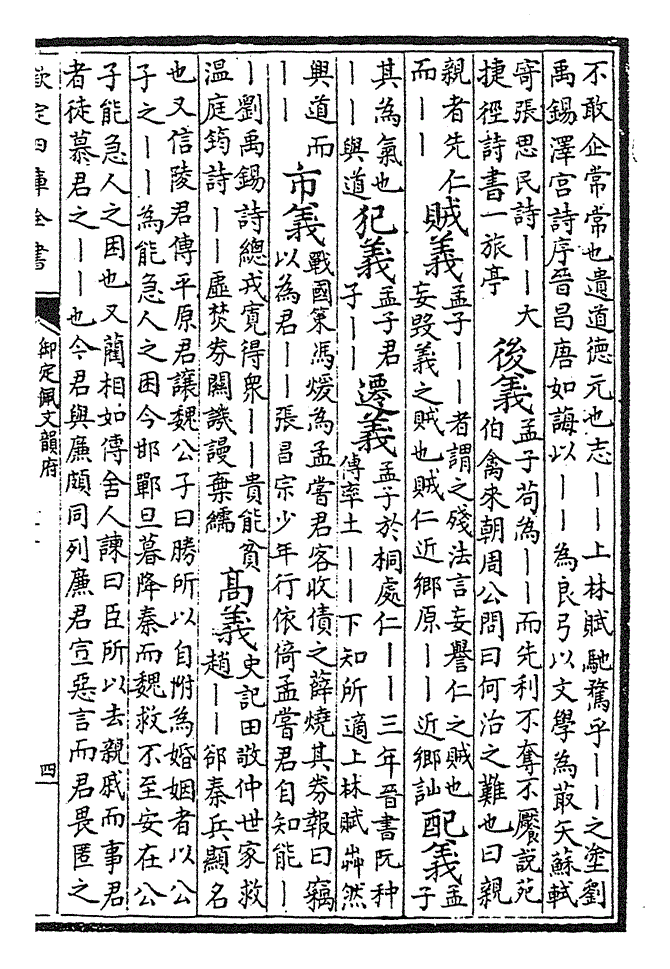 不敢企常常也遺道德元也志｜｜上林賦馳騖乎｜｜之塗劉
禹錫澤宫詩序晉昌唐如誨以｜｜為良弓以文學為菆矢蘇軾
寄張思民詩｜｜大
捷徑詩書一旅亭
後義
孟子苟為｜｜而先利不奪不饜說苑
伯禽來朝周公問曰何治之難也曰親
親者先仁
而｜｜
賊義
孟子｜｜者謂之殘法言妄譽仁之賊也
妄毁義之賊也賊仁近鄉原｜｜近鄉訕
配義
孟
子
其為氣也
｜｜與道
犯義
孟子君
子｜｜
遷義
孟子於桐處仁｜｜三年晉書阮种
傳率土｜｜下知所適上林賦芔然
興道而
｜｜
市義
戰國策馮煖為孟嘗君客收債之薛燒其券報曰竊
以為君｜｜張昌宗少年行依倚孟嘗君自知能｜
｜劉禹錫詩總戎寛得衆｜｜貴能貧
温庭筠詩｜｜虚焚券關譏謾棄繻
高義
史記田敬仲世家救
趙｜｜郤秦兵顯名
也又信陵君傳平原君讓魏公子曰勝所以自附為婚姻者以公
子之｜｜為能急人之困今邯鄲旦暮降秦而魏救不至安在公
子能急人之困也又藺相如傳舍人諫曰臣所以去親戚而事君
者徒慕君之｜｜也今君與廉頗同列廉君宣惡言而君畏匿之
欽定四庫全書
御定佩文韻府
四